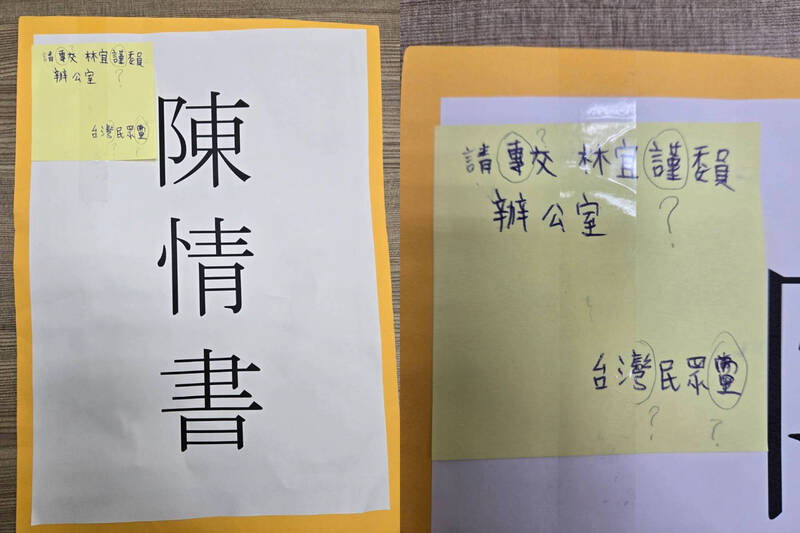 請專交 林宜謹委員
辦公室 ?
台灣民眾黨
? ?
陳
情
書
?
請專交 林宜謹委員
辦公室 ?
台灣民眾黨
? ?